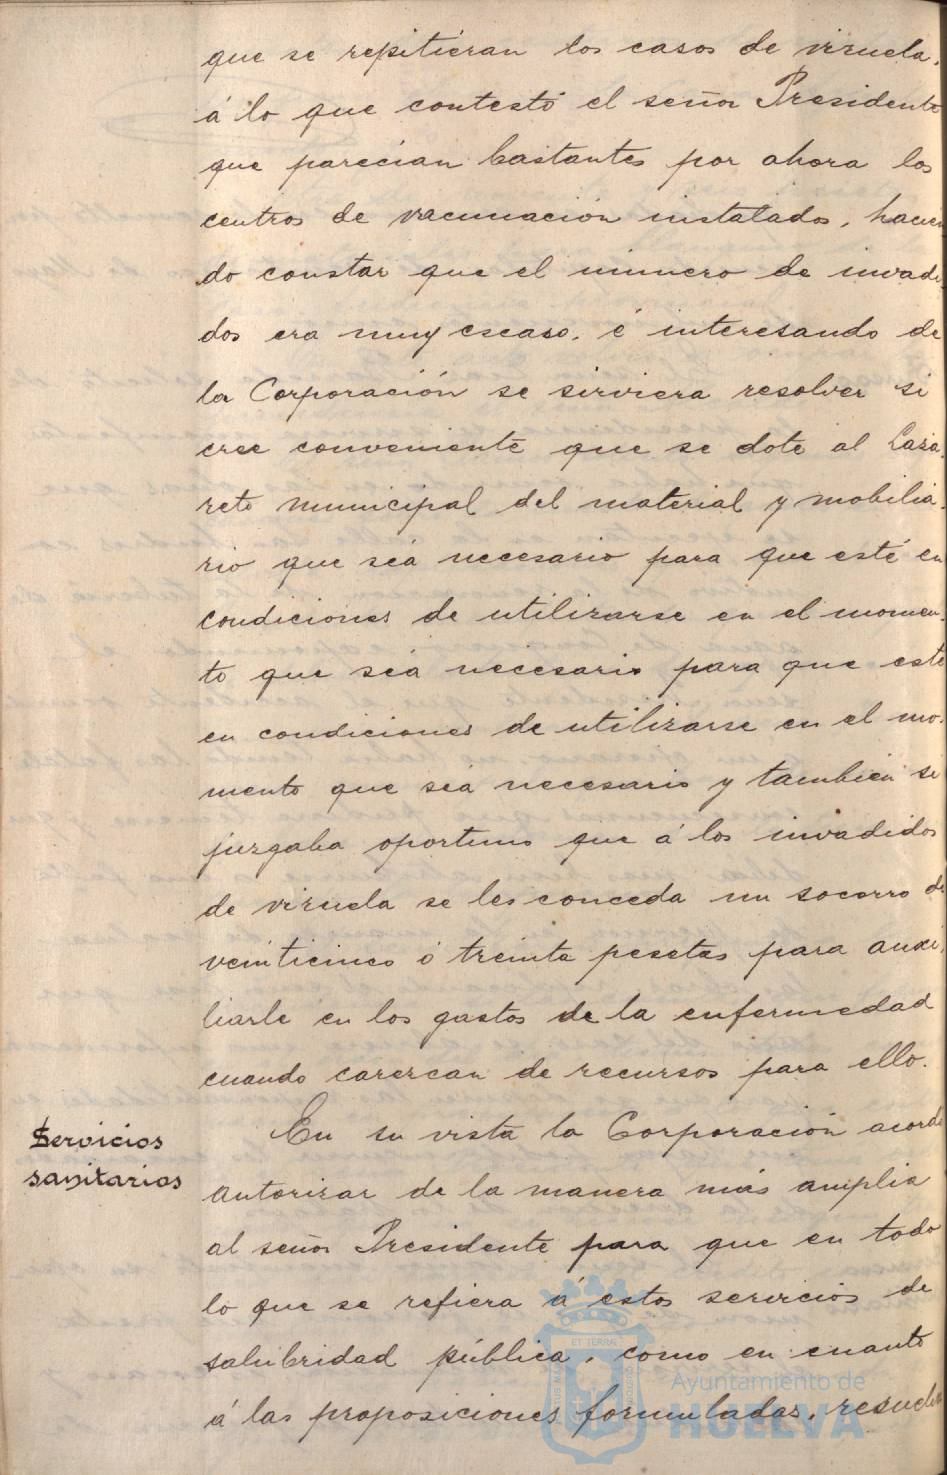 que se repitieran los casos de viruela,
á lo que contestó el señor Presidente
que parecian bastantes por ahora los
centros de vacunación instalados, hacien
do constar que el número de invadi
dos era muy escaso, é interesando de
la Corporación se sirviera resolver si
cree conveniente que se dote al Laza-
reto municipal del material y mobilia-
rio que sea necesario para que esté en
condiciones de utilizarse en el momen-
to que sea necesario para que esté
en condiciones de utilizarse en el mo-
mento que sea necesario y tambien si
juzgaba oportuno que á los invadidos
de viruela se les conceda un socorro de
veinticinco ó treinta pesetas para auxi-
liarle en los gastos de la enfermedad
cuando carezcan de recursos para ello.
Servicios
sanitarios
En su vista la Corporación acordó
autorizar de la manera más amplia
al señor Presidente para que en todo
lo que se refiera á estos servicios de
salubridad pública, como en cuanto
á las proposiciones formuladas, resuelva
Ayuntamiento de
HUELVA